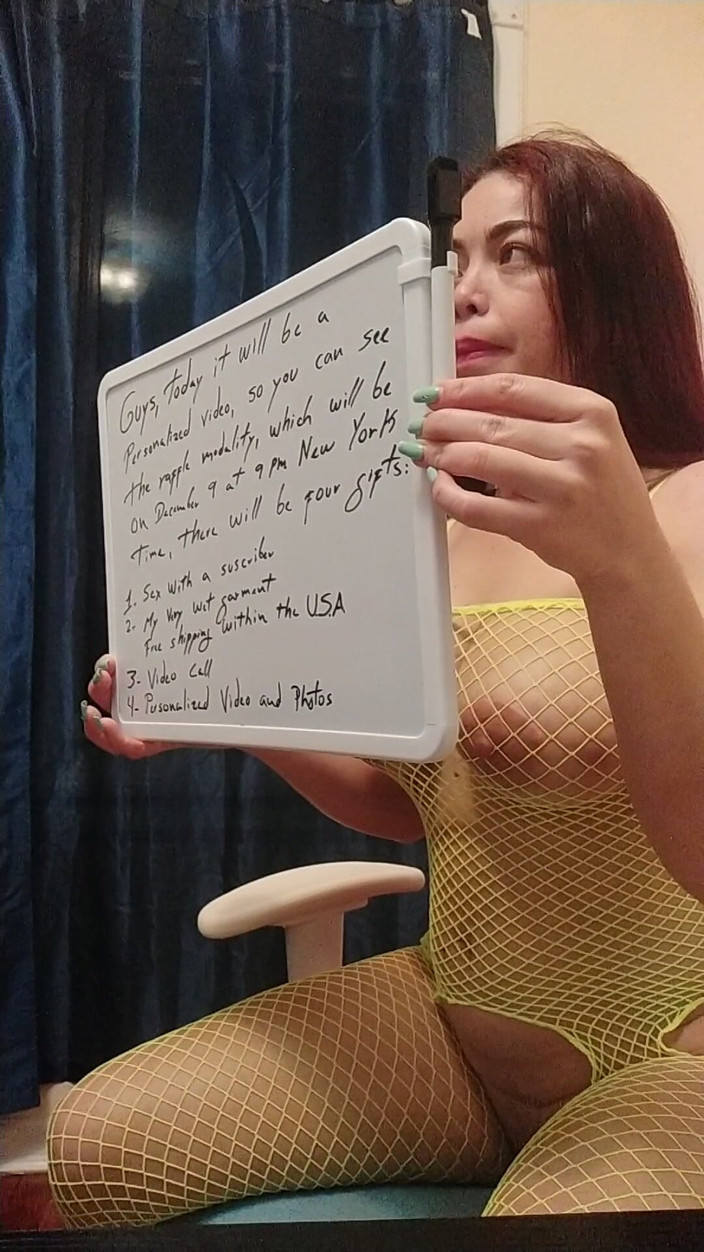 Guys, today it will be a
Personalized video, so you can see
the raffle modality, which will be
on December 9 at 9 pm New York
time, there will be four gifts:
1. Sex with a suscriber
2- My Very Wet garment
Free shipping within the USA
3- Video Call
4- Personalized Video and Photos